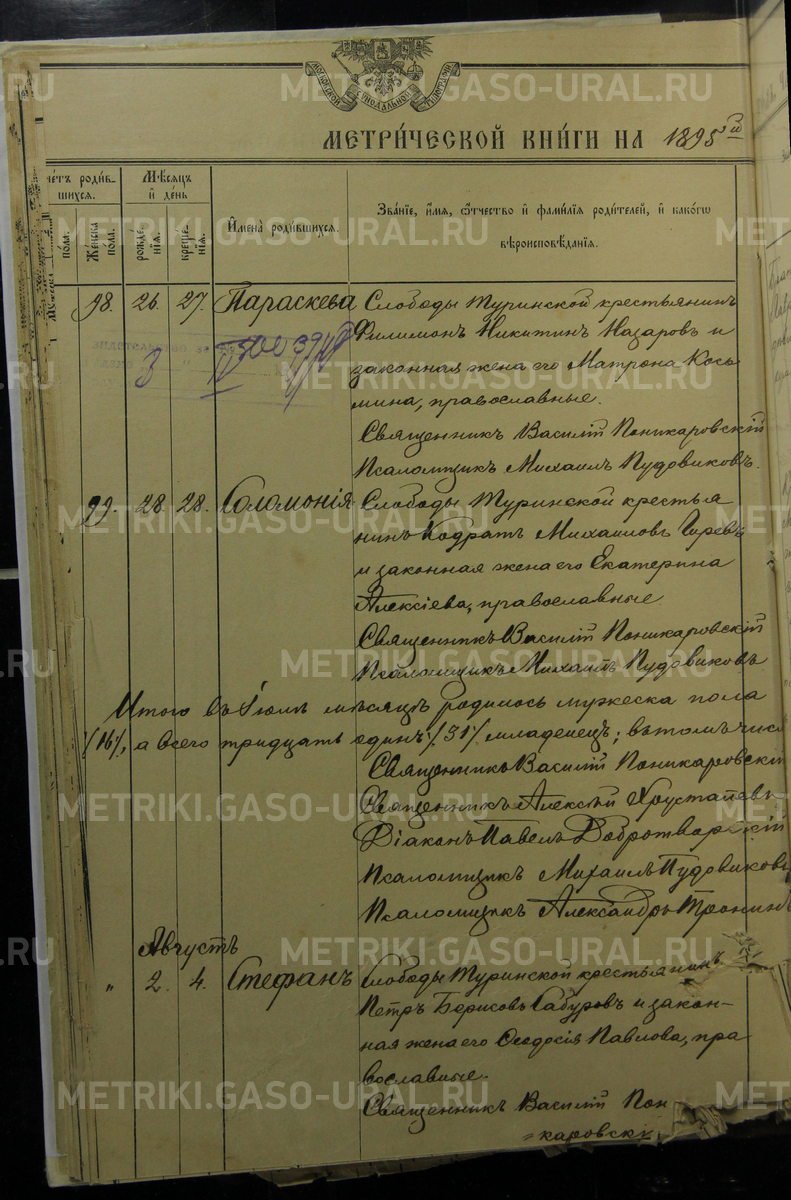 МОСКОВСКОЙ СѴНОДАЛЬНОЙ ТѴПОГРАФІИ
МЕТРИ́ЧЕСКОЙ КНИ́ГИ НА 1895й
чéтъ роди́в-
шихся.
Мѣ́сяцъ
и҆ де́нь
И҆мена̀ роди́вшихся.
Зва́нїе, и҆́мя, ѻ҆́тчество и҆ фами́лїя роди́телей, и҆ како́гѡ
вѣроисповѣ́данїя.
Му́жеска
по́ла.
Же́нска
по́ла.
рожде́-
нїя.
креще́-
нїя.
98. 26. 27. Параскева Слободы Туринской крестьянинъ
Филимонъ Никитинъ Назаровъ и
законная жена его Матрона Кось-
мина, православные.
3 IV
Священникъ Василій Поникаровскій
Псаломщикъ Михаилъ Пудовиковъ.
99. 28. 28. Соломонія Слободы Туринской крестья
нинъ Кодратъ Михаиловъ Гиревъ
и законная жена его Екатерина
Алексіева, православные
Священникъ Василій Поникаровскій
Псаломщикъ Михаилъ Пудовиковъ
Итого въ Іюлѣ мѣсяцѣ родилось мужеска пола
/16/, а всего тридцать единъ /31/ младенецъ; въ томъ числ
Священникъ Василій Поникаровскій
Священникъ Алексѣй Хрусталевъ
Діаконъ Павелъ Добротворскій
Псаломщикъ Михаилъ Пудовиковъ
Псаломщикъ Александръ Тронинъ
Августъ
" 2. 4. Стефанъ Слободы Туринской крестьянинъ
Петръ Борисовъ Сабуровъ и закон-
ная жена его Ѳеодосія Павлова, пра
вославные.
Священникъ Василій Пон
=каровскі
METRIKI.GASO-URAL.RU